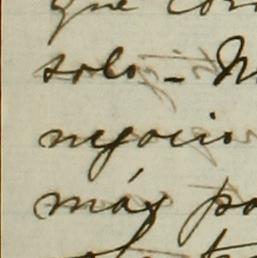 que con
solo - M
negocio
más po